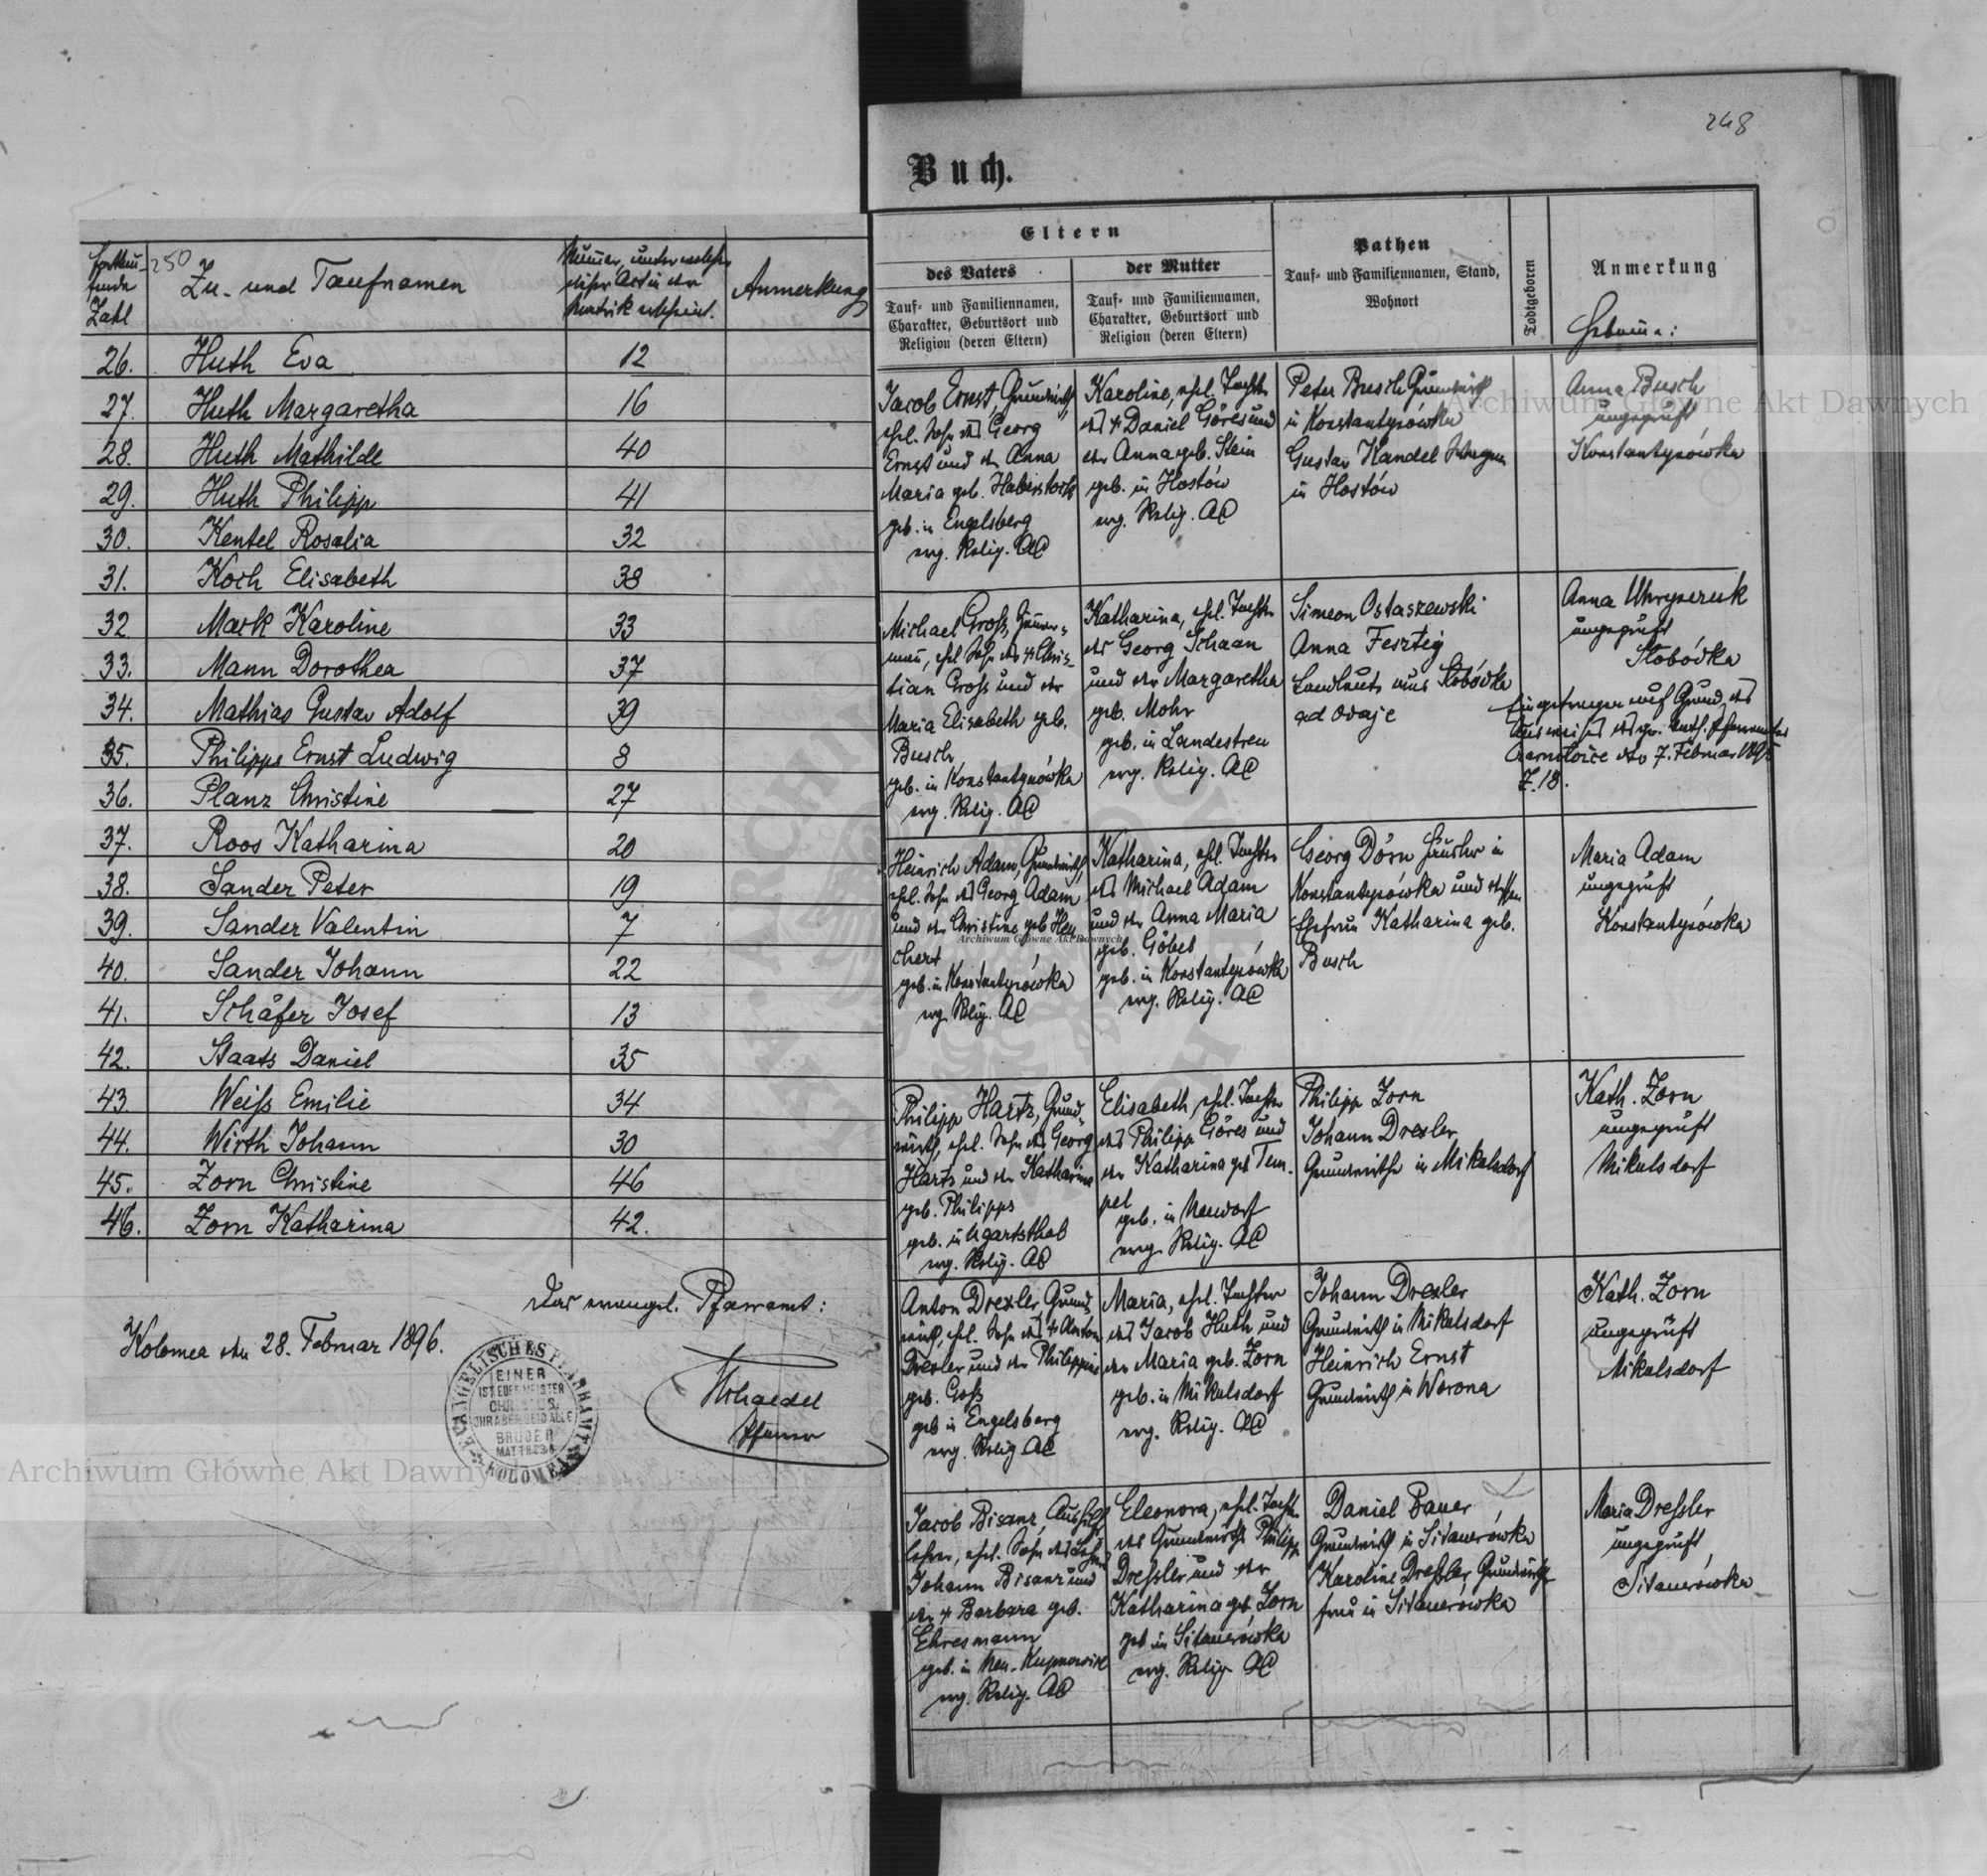 250
Zu- und Taufnamen
Zahl
Anmerkung
26. Huth Eva 12
27. Huth Margaretha 16
28. Huth Mathilde 40
29. Huth Philipp 41
30. Kentel Rosalia 32
31. Koch Elisabeth 38
32 Mark Karoline 33
33. Mann Dorothea 37
34. Mathias Gustav Adolf 39
35. Philipps Ernst Ludwig 8
36. Planz Christine 27
37. Roos Katharina 20
38. Sander Peter 19
39. Sander Valentin 7
40. Sander Johann 22
41. Schäfer Josef 13
42. Staats Daniel 35
43. Weiß Emilie 34
44. Wirth Johann 30
45. Zorn Christine 46
46. Zorn Katharina 42.
Das evangel. Pfarramt:
Kolomea den 28. Februar 1896.
Pfarrer
EVANGELISCHES PFARRAMT KOLOMEA
EINER
IST EUER MEISTER
CHRISTUS.
IHR ABER SEID ALLE
BRÜDER
MATTH 23 8
248
Buch.
Eltern
des Vaters
Tauf- und Familiennamen,
Charakter, Geburtsort und
Religion (deren Eltern)
der Mutter
Tauf- und Familiennamen,
Charakter, Geburtsort und
Religion (deren Eltern)
Pathen
Tauf- und Familiennamen, Stand,
Wohnort
Todtgeboren
Anmerkung
Jacob Ernst, Grundwirth,
ehel. Sohn des Georg
Ernst und der Anna
Maria geb. Haberstock
geb. in Engelsberg
evg. Relig. AC
Karoline, ehel. Tochter
des + Daniel Göres und
der Anna geb. Stein
geb. in Hostów
evg. Relig. AC
Peter Busch Grundwirth
in Konstantynówka
Gustav Kandel
in Hostów
Anna Busch
ungeprüft
Konstantynówka
Michael Groß,
ehel. Sohn des + Chris-
tian Groß und der
Maria Elisabeth geb.
Busch
geb. in Konstantynówka
evg. Relig. AC
Katharina, ehel. Tochter
des Georg Schaan
und der Margaretha
geb. Mohr
geb. in Landestreu
evg. Relig. AC
Simeon Ostaszewski
Anna Fesztej
Landleute aus Słobódka
ad Odaje
Anna
ungeprüft
Słobódka
Eingetragen auf Grund des
Ausweises des
7. Februar 1895
Z. 18.
Heinrich Adam, Grundwirth,
ehel. Sohn des Georg Adam
und der Christine geb. Heu
chert
geb. in Konstantynówka
evg. Relig. AC
Katharina, ehel. Tochter
des Michael Adam
und der Anna Maria
geb. Göbel
geb. in Konstantynówka
evg. Relig. AC
Georg Dörn Häusler in
Konstantynówka und dessen
Ehefrau Katharina geb.
Busch
Maria Adam
ungeprüft
Konstantynówka
Philipp Hartz, Grund-
wirth, ehel. Sohn des Georg
Hartz und der Katharina
geb. Philipps
geb. in Ugartsthal
evg. Relig. AC
Elisabeth, ehel. Tochter
des Philipp Göres und
der Katharina geb. Tem-
pel
geb. in Neudorf
evg. Relig. AC
Philipp Zorn
Johann Drexler
Grundwirthe in Mikulsdorf
Kath. Zorn
ungeprüft
Mikulsdorf
Anton Drexler, Grund-
wirth, ehel. Sohn des + Anton
Drexler und der Philippine
geb. Goß
geb in Engelsberg
evg. Relig AC
Maria, ehel. Tochter
des Jacob Huth und
der Maria geb. Zorn
geb. in Mikulsdorf
evg. Relig. AC
Johann Drexler
Grundwirth in Mikulsdorf
Heinrich Ernst
Grundwirth in Worona
Kath. Zorn
ungeprüft
Mikulsdorf
Jacob Bisanz, Aushilfs-
lehrer, ehel. Sohn des
Johann Bisanz und
der + Barbara geb.
Ehresmann
geb. in Neu-Kupnowice
evg. Relig. AC
Eleonora, ehel. Tochter
des Grundwirths Philipp
Dreßler und der
Katharina geb. Zorn
geb in Sitauerówka
evg. Relig. AC
Daniel Bauer
Grundwirth in Sitauerówka
Karoline Dreßler Grundwirths-
frau in Sitauerówka
Maria Dreßler
ungeprüft
Sitauerówka
Archiwum Główne Akt Dawnych
Archiwum Główne Akt Dawnych
Archiwum Główne Akt Dawnych